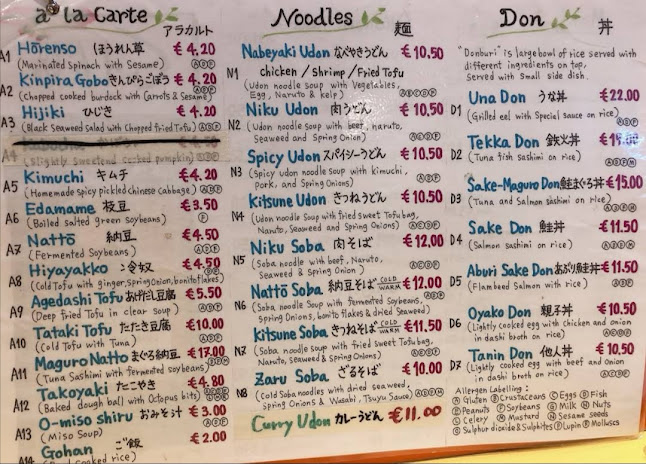 à la Carte
アラカルト
A1 Hōrenso ほうれん草 €4.20
(Marinated Spinach with Sesame)
Kinpira Gobo きんぴらごぼう €4.20
A2 (Chopped cooked burdock with Carrots & Sesame)
Hijiki ひじき €4.20
A3 (Black Seaweed Salad with Chopped fried Tofu)
A4 (Slightly sweetend cooked pumpkin)
A5 Kimuchi キムチ €4.20
(Homemade spicy pickled chinese cabbage)
A6 Edamame 枝豆 €3.50
(Boiled salted green soybeans)
A7 Nattō 納豆 €4.50
(Fermented Soybeans)
Hiyayakko 冷奴 €4.50
A8 (Cold Tofu with ginger, Spring Onion, bonitoflakes)
A9 Agedashi Tofu あげだし豆腐 €5.50
(Deep fried Tofu in clear soup)
A10 Tataki Tofu たたき豆腐 €10.00
(Cold Tofu with Tuna)
A11 Maguro Natto まぐろ納豆 €17.00
(Tuna Sashimi with fermented soybeans)
A12 Takoyaki たこやき €4.80
(Baked dough ball with Octopus bits)
A13 O-miso shiru おみそ汁 €3.00
(Miso Soup)
A14 Gohan ご飯 €2.00
cooked rice)
Noodles 麺
Nabeyaki Udon なべやきうどん €10.50
N1 chicken / shrimp / Fried Tofu
(Udon noodle soup with Vegetables, Egg, Naruto & kelp)
Niku Udon 肉うどん €10.50
N2 (Udon noodle soup with beef, naruto, Seaweed and Spring Onion)
Spicy Udon スパイシーうどん €10.50
N3 (Spicy udon noodle soup with kimuchi, pork, and Spring Onions)
Kitsune Udon きつねうどん €10.50
N4 (Udon noodle Soup with fried sweet Tofu bag, Naruto, Seaweed and Spring Onions)
Niku Soba 肉そば €12.00
N5 (Soba noodle with beef, Naruto, Seaweed & Spring Onion)
Nattō Soba 納豆そば COLD WARM €12.00
N6 (Soba noodle soup with fermented Soybeans, Spring Onions, bonito flakes & dried Seaweed)
Kitsune Soba きつねそば COLD WARM €11.50
N7 (Soba noodle soup with fried sweet Tofu bag, Naruto, Seaweed & Spring Onions)
Zaru Soba ざるそば €10.00
N8 (Cold Soba noodles with dried seaweed, spring Onions & Wasabi, Tsuyu Sauce)
Curry Udon カレーうどん €11.00
Don 丼
"Donburi" is large bowl of rice served with
different ingredients on top,
Served with small side dish.
Una Don うな丼 €22.00
D1 (Grilled eel with Special sauce on rice)
Tekka Don 鉄火丼
D2 (Tuna fish sashimi on rice)
Sake-Maguro Don 鮭まぐろ丼 €15.00
D3 (Tuna and Salmon sashimi on rice)
Sake Don 鮭丼 €11.50
D4 (Salmon sashimi on rice)
Aburi Sake Don あぶり鮭丼 €11.50
D5 (Flambeed Salmon with rice)
Oyako Don 親子丼 €10.50
D6 (Lightly cooked egg with Chicken and onion in dashi broth on rice)
Tanin Don 他人丼 €10.50
D7 (Lightly cooked egg with beef and Onion in dashi broth on rice)
Allergen Labelling:
A Gluten B Crustaceans C Eggs D Fish
E Peanuts F Soybeans G Milk H Nuts
L Celery M Mustard N Sesame seeds
O Sulphur dioxide & Sulphites P Lupin R Molluscs